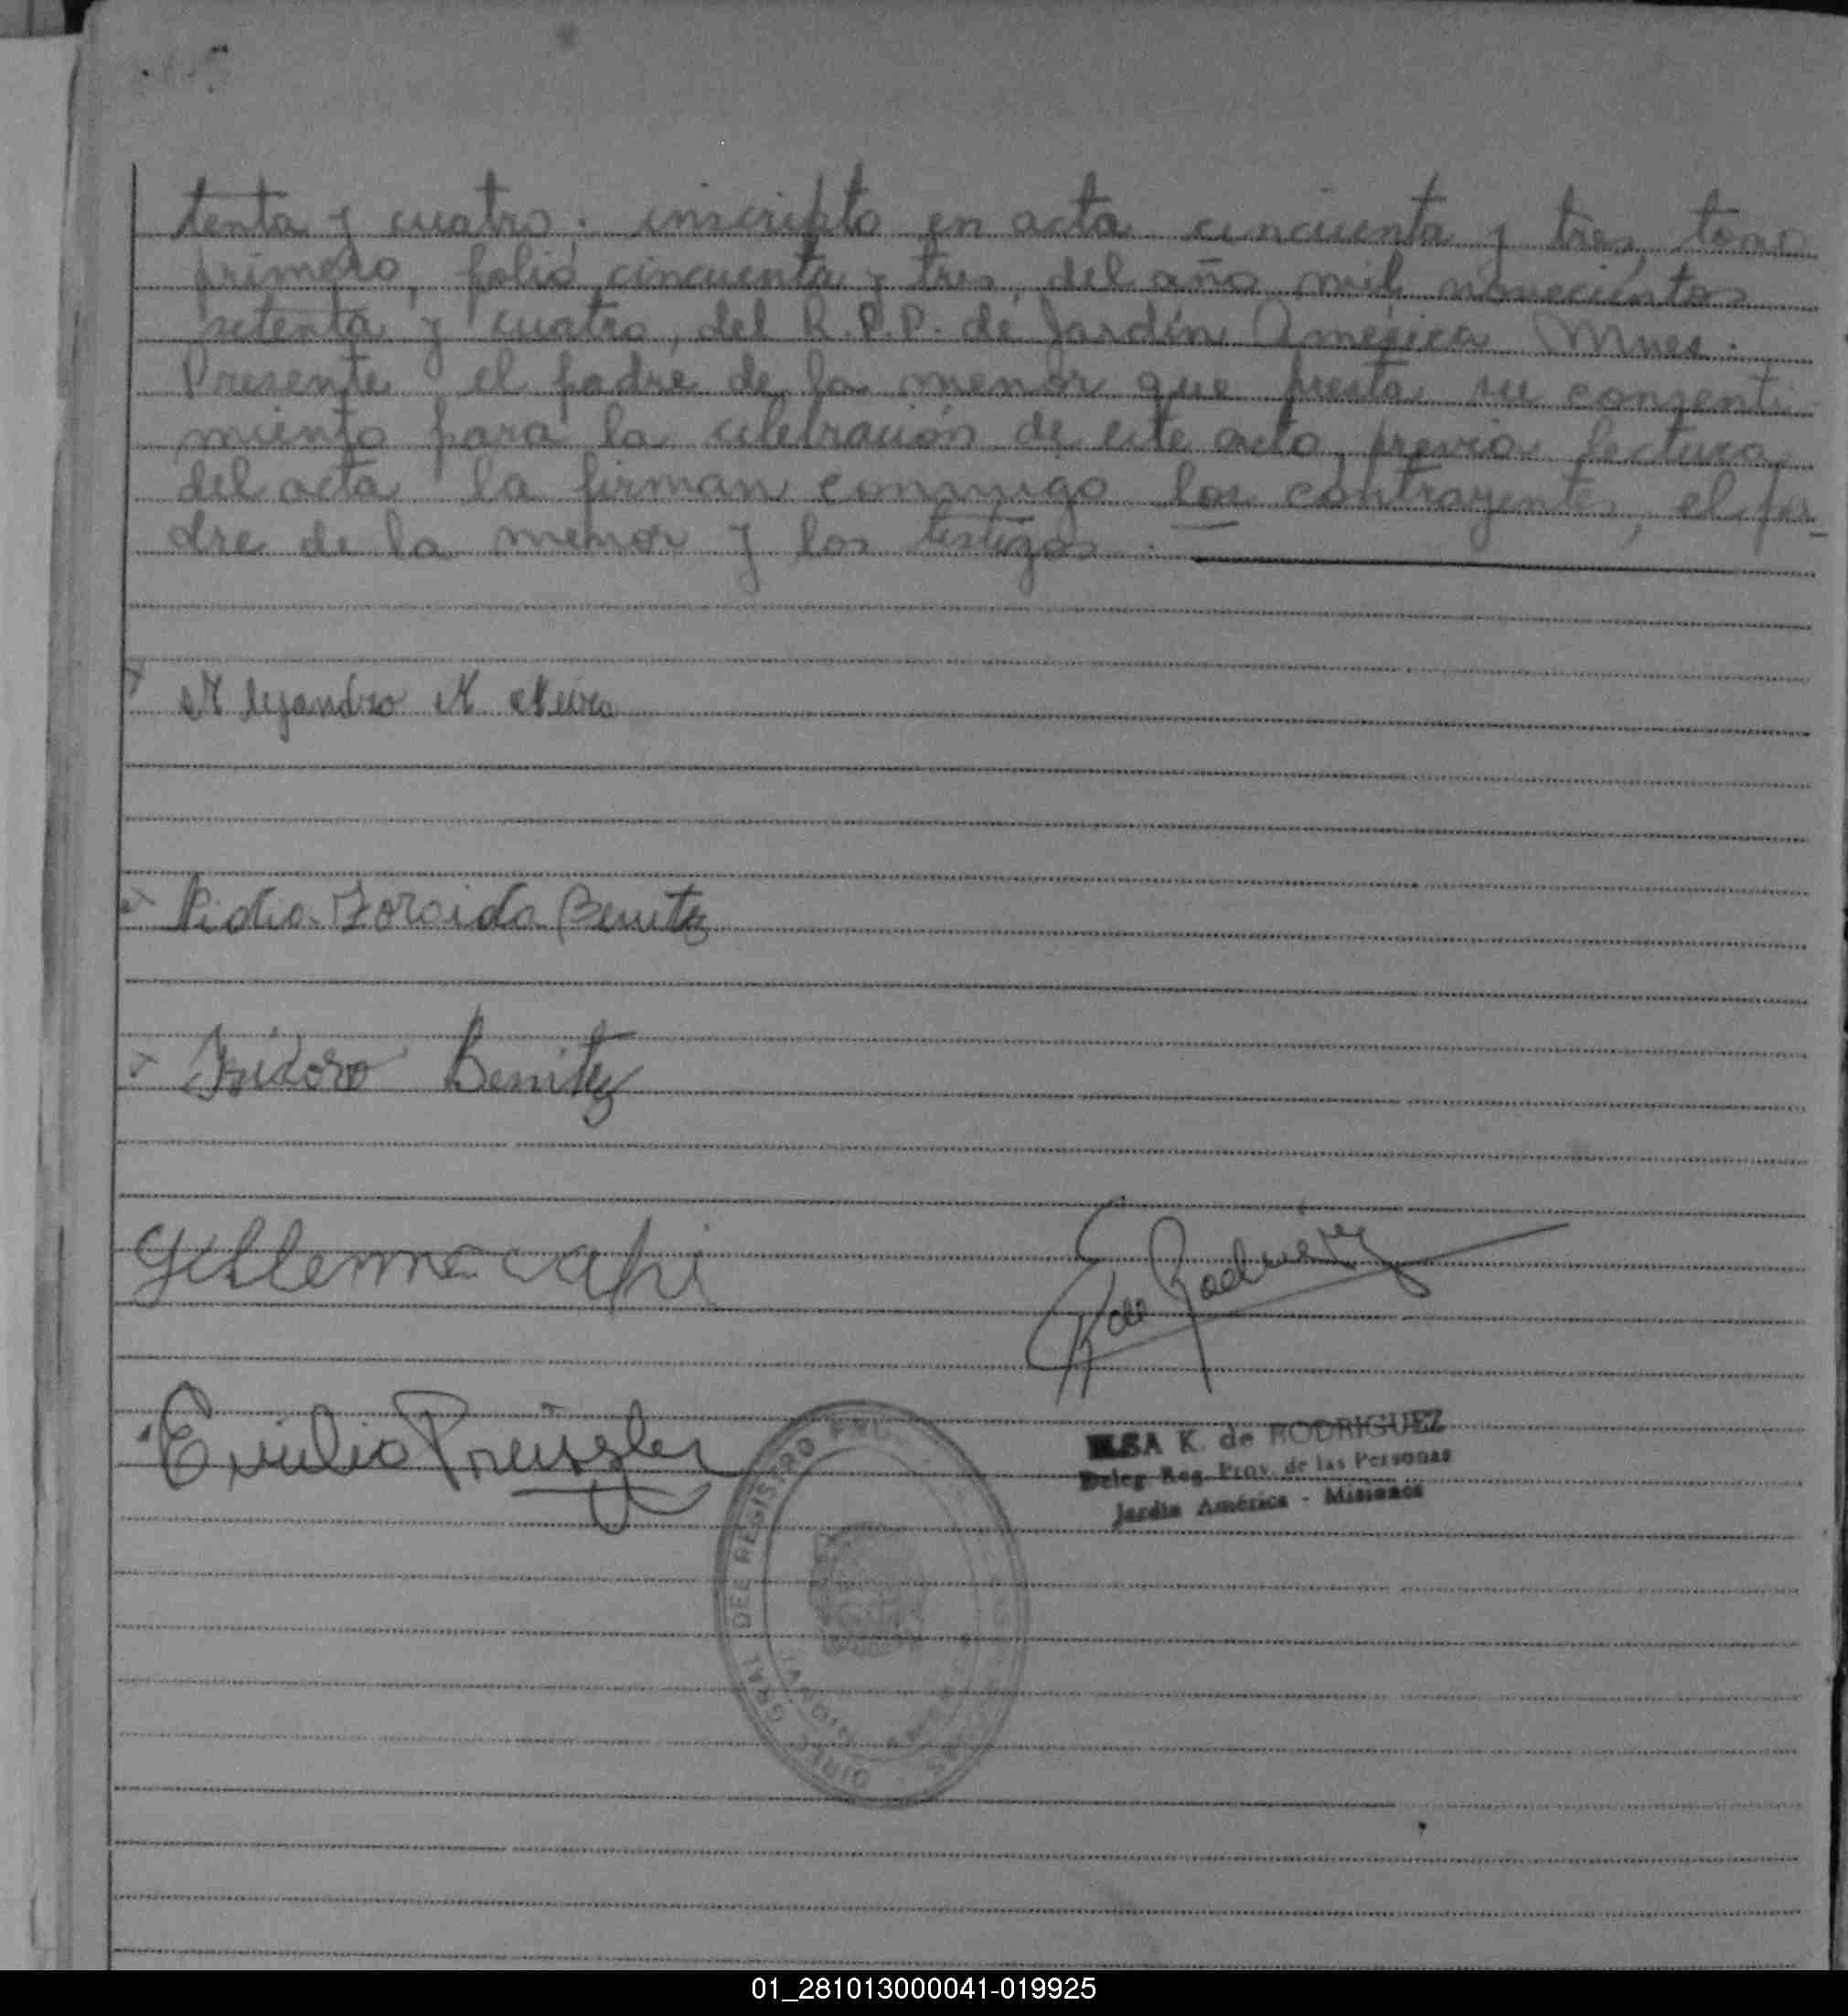 tenta y cuatro; inscripto en acta cincuenta y tres, tomo
primero, folio cincuenta y tres, del año mil novecientos
setenta y cuatro, del R.P.P. de Jardín América Mnes.
Presente el padre de la menor que presta su consenti
miento para la celebración de este acto, previa lectura
del acta la firman conmigo los contrayentes, el pa-
dre de la menor y los testigos.
Alejandro N Neira
Zoraida Benitez
Isidoro Benitez
Rodriguez
Emilio
K. de RODRIGUEZ
Deleg Reg Prov. de las Personas
Jardín América - Misiones
DIREC GRAL DEL REGISTRO
01_281013000041-019925